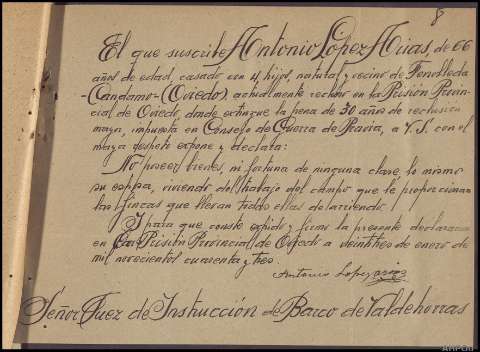 8
El que suscribe Antonio López Arias, de 66
años de edad, casado con 4 hijos, natural y vecino de Fenolleda
-Candamo-(Oviedo), actualmente recluso en la Prisión Provin-
cial de Oviedo, donde extingue la pena de 30 años de reclusión
mayor, impuesta en Consejo de Guerra de Pravia, a V.S. con el
mayor respeto expone y declara:
No poseer bienes, ni fortuna de ninguna clase, lo mismo
su esposa, viviendo del trabajo del campo que le proporcionan
las fincas que llevan todas ellas de arriendo.
Y para que conste expido y firmo la presente declaracion
en la Prisión Provincial de Oviedo a veintitres de enero de
mil novecientos cuarenta y tres.
Antonio Lopez Arias
Señor Juez de Instrucción de Barco de Valdehorras
ARPOU